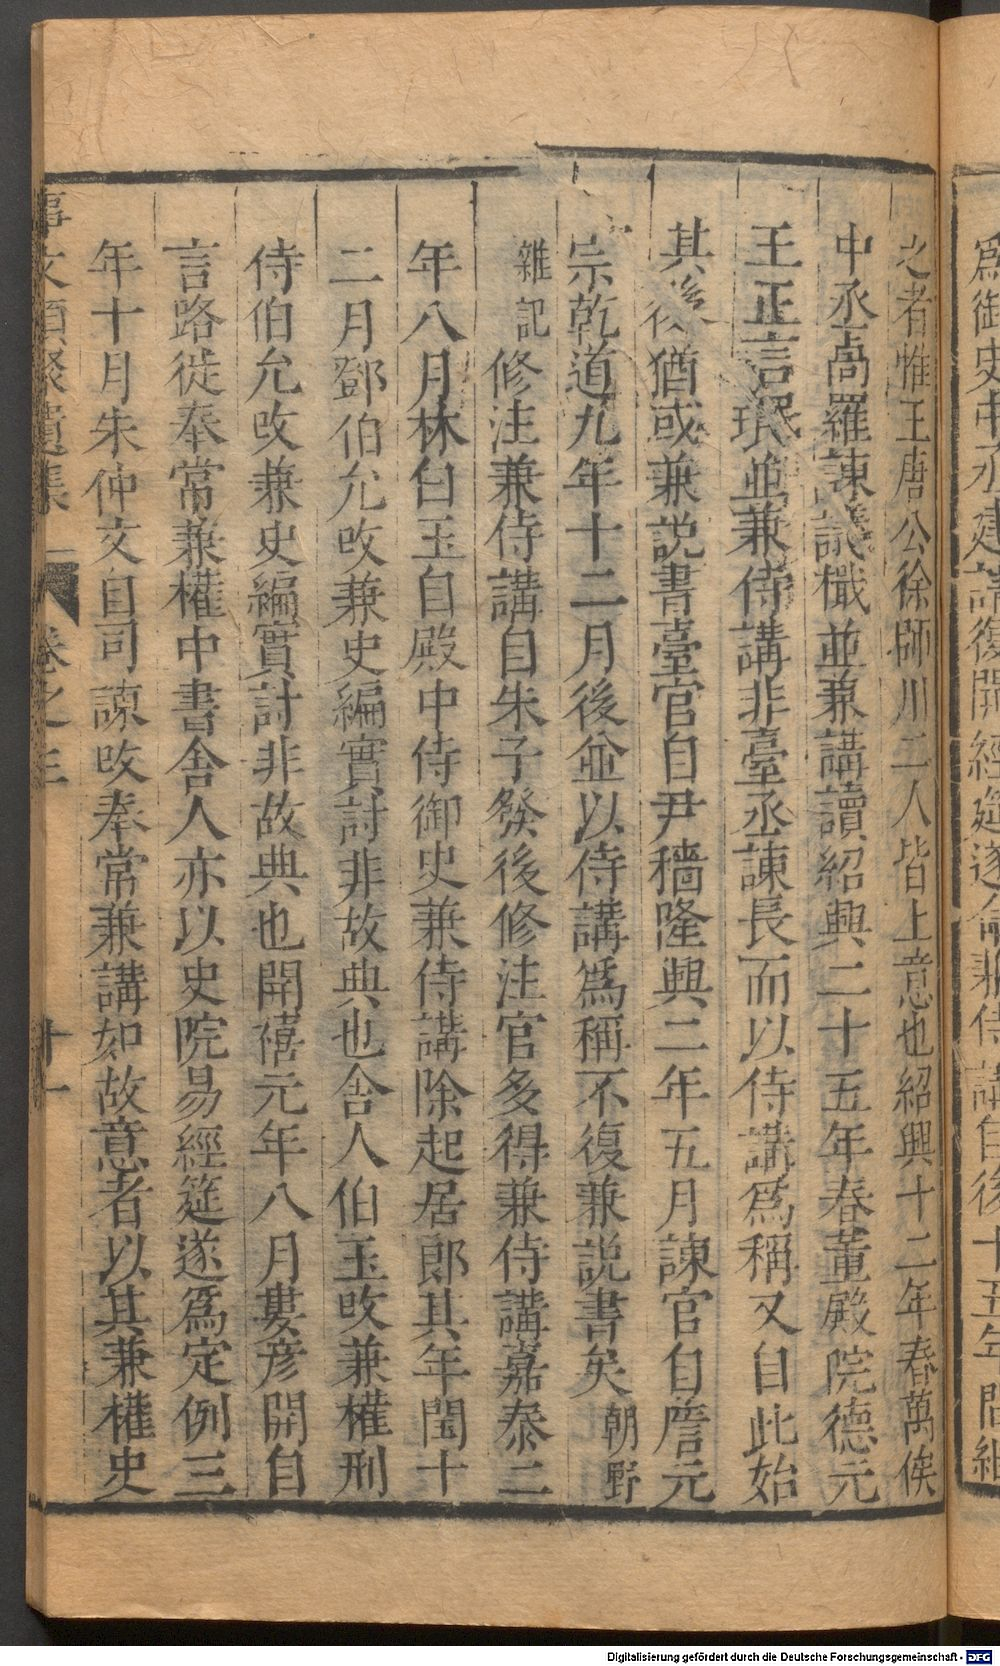 爲御史中丞建請復開經筵遂命兼侍講自後十五年間繼
之者惟王唐公徐師川二人皆上意也紹興十二年春萬俟
中丞卨羅諫議檝並兼講讀紹興二十五年春董殿院德元
王正言珉並兼侍講非臺丞諫長而以侍講爲稱又自此始
其後猶或兼說書臺官自尹穡隆興二年五月諫官自詹元
宗乾道九年十二月後並以侍講爲稱不復兼說書矣朝野
雜記
修注兼侍講自朱子發後修注官多得兼侍講嘉泰二
年八月林白玉自殿中侍御史兼侍講除起居郎其年閏十
二月鄧伯允改兼史編實討非故典也舍人伯玉改兼權刑
侍伯允改兼史編實討非故典也開禧元年八月婁彦開自
言路徙奉常兼權中書舍人亦以史院易經筵遂爲定例三
年十月朱仲文自司諫改奉常兼講如故意者以其兼權史
事文類聚遺集 卷之三 十一
Digitalisierung gefördert durch die Deutsche Forschungsgemeinschaft - DFG